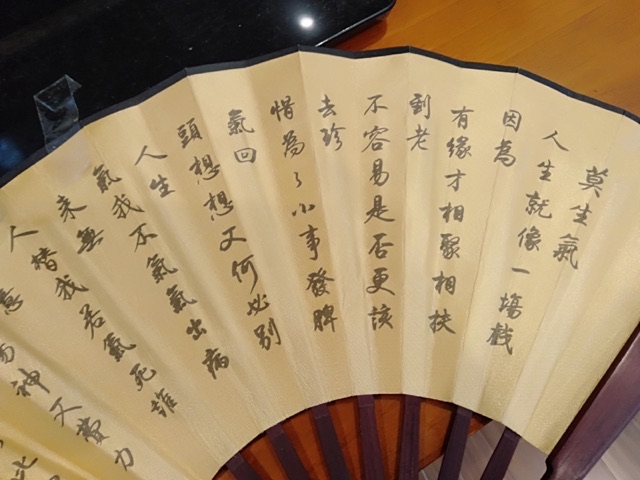 莫生氣
人生就像一塲戲
因為
有緣才相聚相扶
到老
不容易是否更該
去珍
惜為了小事發脾
氣回
頭想想又何必別
人生
氣我不氣氣出病
来無
人替我若氣死誰
意
神又費力